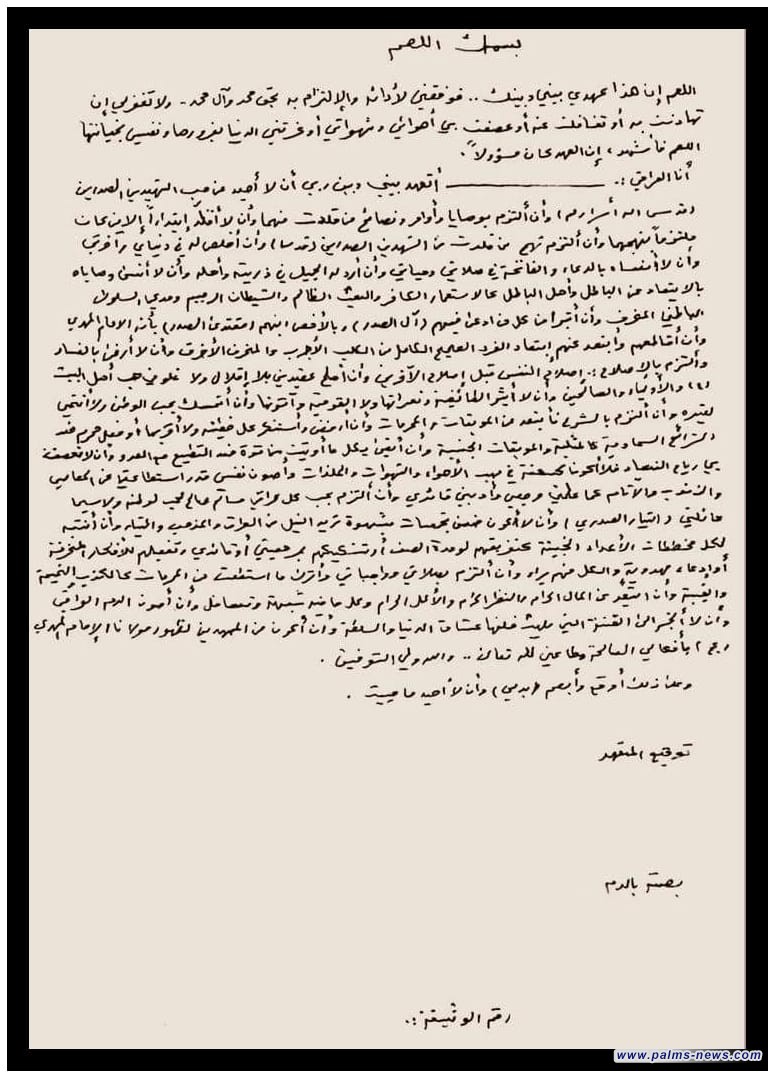 بسمك اللهم
اللهم إن هذا عهدي بيني وبينك .. فوفقني لأدائه والإلتزام به بحق محمد وآل محمد - ولا تغفر لي إن
تهاونت به أو تغافلت عنه أو عصفت بي أهوائي وشهواتي أو غرتني الدنيا بغرورها ونفسي بخيانتها
اللهم فأشهد ، إن العهد كان مسؤولاً .
أنا العراقي :. ــــــــــــــــ أتعهد بيني وبين ربي أن لا أحيد عن حب الشهيدين الصدرين
(قدس الله أسرارهم) وأن ألتزم بوصايا وأوامر ونصائح من قلدت منهما وأن لا أقلد إبتداءاً إلا من كان
ملتزماً بنهجهما وأن ألتزم نهج من قلدت من الشهيدين الصدرين (قدسا) وأن أخلص له في دنياي وآخرتي
وأن لا أنساه بالدعاء والفاتحة في صلاتي وحياتي وأن أرد له الجميل في ذريته وأهله وأن لا أنسى وصاياه
بالابتعاد عن الباطل وأهل الباطل كالاستعمار الكافر والبعث الظالم والشيطان الرجيم ومدعي السلوك
الباطني المنحرف وأن أتبرأ من كل من ادعى فيهم (آل الصدر) وبالأخص ابنهم (مقتدى الصدر) بأنه الامام المهدي
وأن أقاطعهم وأبتعد عنهم ابتعاد الفرد الصحيح الكامل من الكلب الأجرب والمنحرف الأخرق وأن لا أرضى بالفساد
وألتزم بالإصلاح :. إصلاح النفس قبل إصلاح الآخرين وأن أصلح عقيدتي بلا إقلال ولا غلو في حب أهل البيت
(ع) والأولياء والصالحين وأن لا أثير الطائفية ونعراتها ولا القومية وآتونها وأن أتمسك بحب الوطن ولا أنتمي
لغيره وأن ألتزم بالشرع فأبتعد عن الموبقات والمحرمات وأن أرفض وأستنكر كل خطيئة ولا أقربها أو فعل محرم ضد
الشرائع السماوية كالمثلية والموبقات الجنسية وأن أتقي بكل ما أوتيت من قوة ضد التطبيع مع العدو وأن لا تعصف
بي رياح الفساد فلا أكون كـ في مهب الأهواء والشهوات والملذات وأصون نفسي قدر استطاعتي عن المعاصي
والذنوب والآثام كما علمني مرجعي وأدبني قائدي وأن ألتزم بحب كل عراقي مسالم صالح محب لوطنه ولا سيما
عائلتي (التيار الصدري) وأن لا أكون ضمن تجمعات مشبوهة تريد النيل من العراق والمذهب والتيار وأن أنتبه
لكل مخططات الأعداء الخبيثة كتفريقهم لوحدة الصف أو تشكيكهم بمرجعيتي أو قائدي وتفعيلهم للأفكار المنحرفة
أو إدعاء مهدوية والكل منهم براء وأن ألتزم بصلاتي وواجباتي وأترك ما استطعت من المحرمات كالكذب والنميمة
والغيبة وأن أبتعد عن المال الحرام والنظر الحرام والأكل الحرام وكل ما فيه شبهة وتساهل وأن أصون الدم العراقي
وأن لا أنجر الى الفتنة التي يلهث خلفها عشاق الدنيا والسلطة وأن أكون من الممهدين لظهور مولانا الإمام المهدي
(عج) بأفعالي الصالحة وطاعتي لله تعالى .. والله ولي التوفيق .
وعلى ذلك أوقع وأبصم (بدمي) وأن لا أحيد ما حييت .
توقيع المتعهد
بصمة بالدم
رقم الوثيقة :.
www.palms-news.com